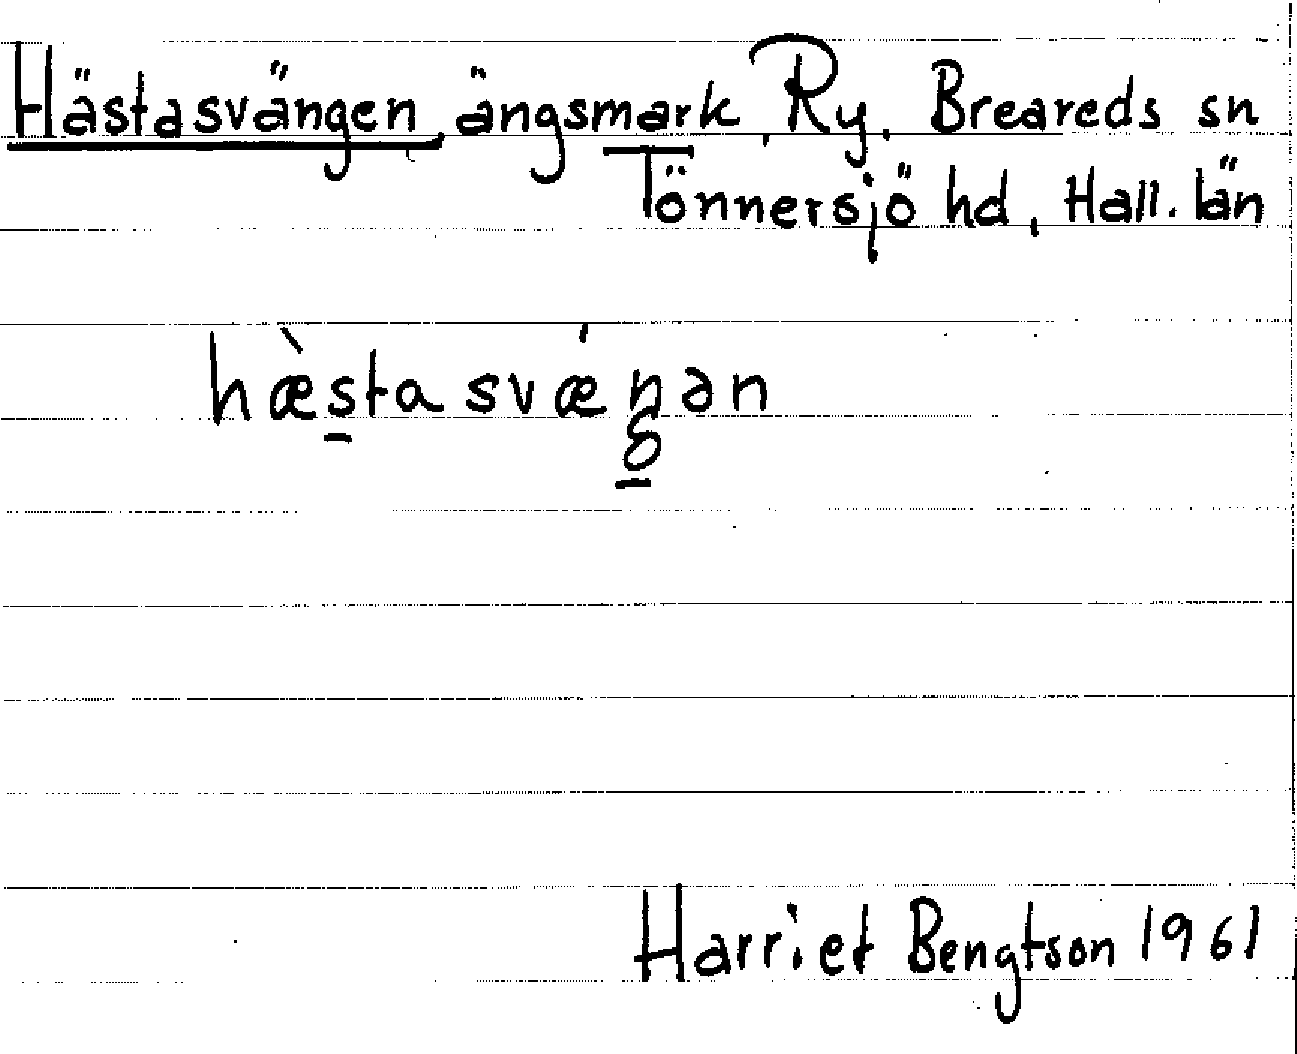 Hästasvängen, ängsmark, Ry, Breareds sn
Tönnersjö hd, Hall. län
hæ̀stasvǽŋən
Harriet Bengtson 1961